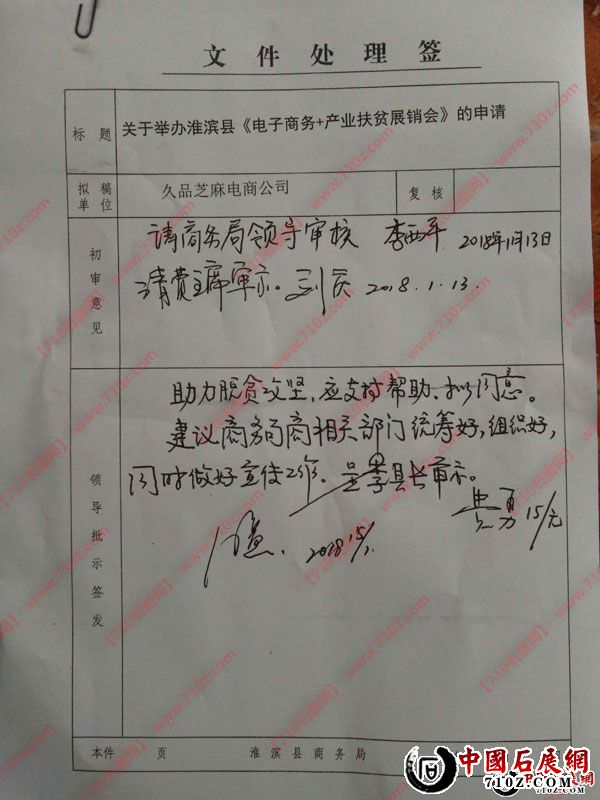 文件处理签
标题 关于举办淮滨县《电子商务+产业扶贫展销会》的申请
拟稿单位 久品芝麻电商公司 复核
初审意见
请商务局领导审核 李西平 2018年1月13日
请费主席审示。 2018.1.13.
领导批示签发
助力脱贫攻坚,应支持帮助、拟同意。
建议商务局商相关部门统筹好,组织好,
同时做好宣传工作。呈 县长审示。
15/元
2018 15/1
本件 页 淮滨县商务局
【710石展网】www.710z.com
中國石展網
710Z.COM